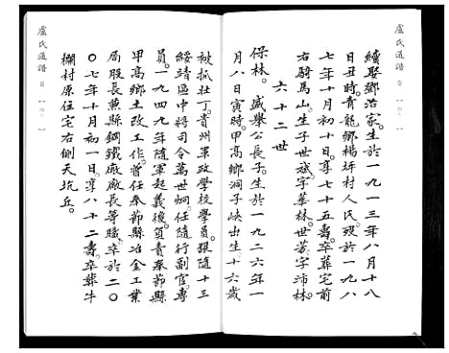 盧氏通譜
續娶鄉治家。生於一九一三年八月十八
日丑時。青龍鄉楊坪村人氏。歿於一九八
七年十月初十日。享七十五壽。卒葬宅前
右騎馬山。生子世斌字華林。世蒙字沛林。
六十二世
保林。盛舉公長子。生於一九二六年一
月八日寅時。甲高鄉洞子峽出生。十六歲
盧氏通譜
被抓壯丁。貴州軍政學校學員。跟隨十三
綏靖區中將司令萬世炯。任隨行副官。專
員。一九四九年隨軍起義後。負責奉節縣
甲高鄉土改工作。曾任奉節縣冶金工業
局股長。兼縣鋼鐵廠廠長等職。卒於二〇
〇七年十月初一日。享八十二壽。卒葬牛
欄村原住宅右側天坑丘。